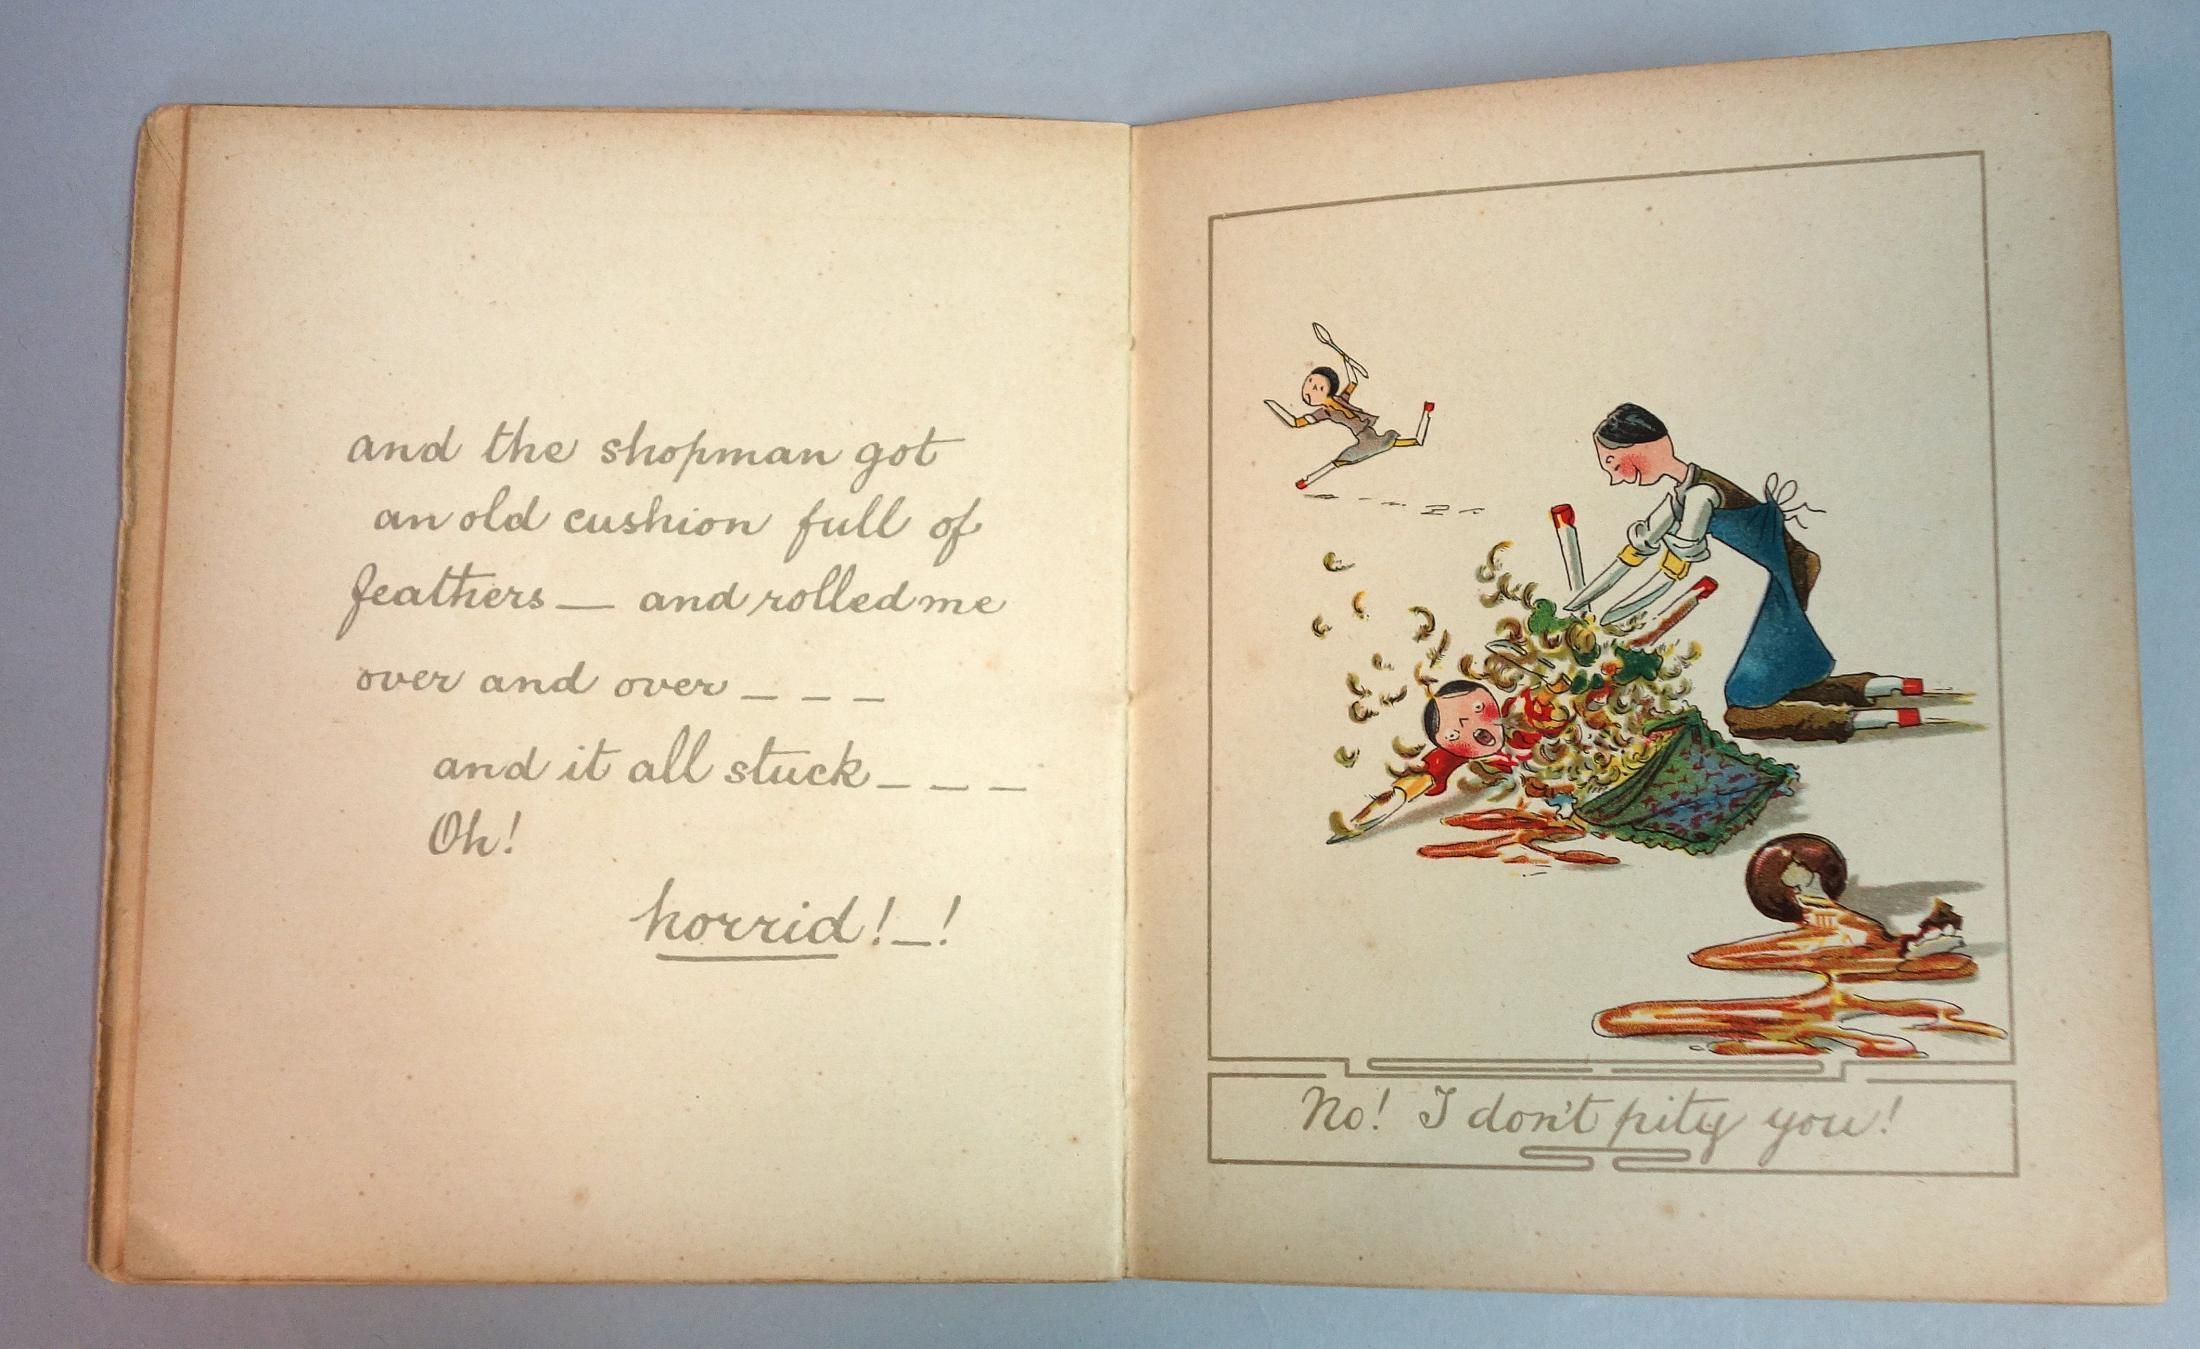 and the shopman got
an old cushion full of
feathers — and rolled me
over and over _ _ _
and it all stuck _ _ _
Oh!
horrid! _ !
No! I don't pity you!